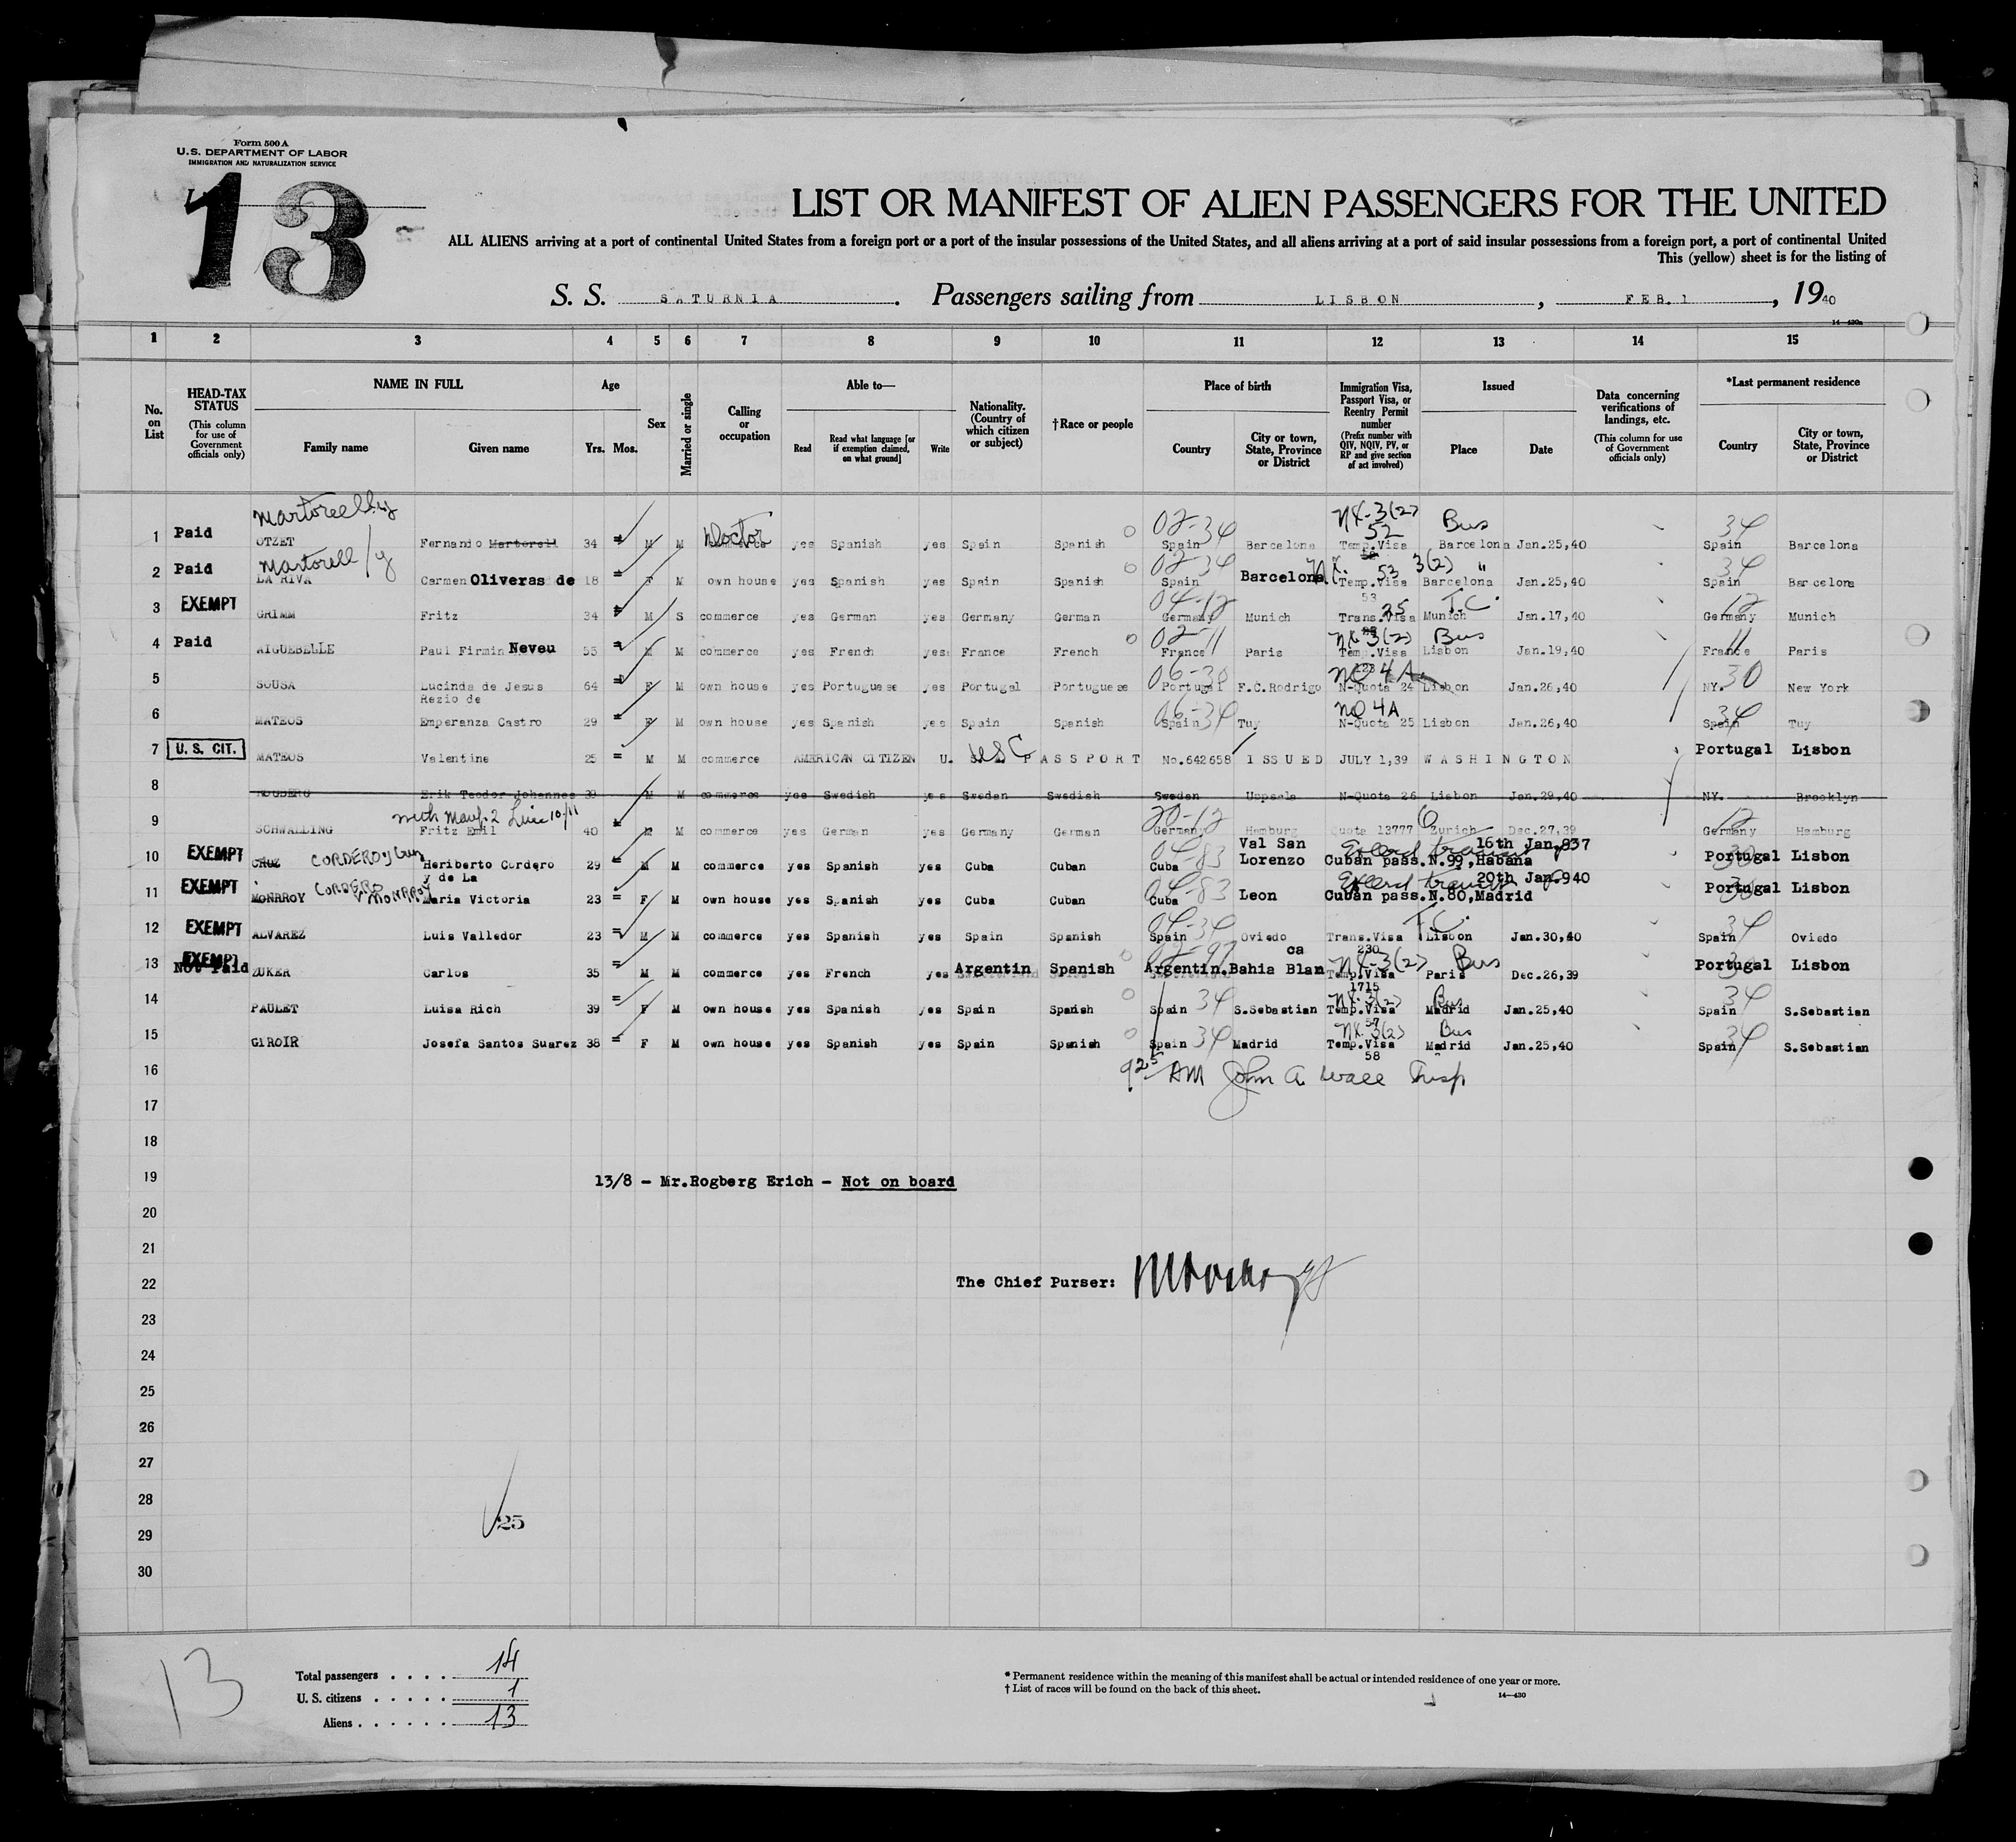 Form 500 A
U.S. DEPARTMENT OF LABOR
IMMIGRATION AND NATURALIZATION SERVICE
13
LIST OR MANIFEST OF ALIEN PASSENGERS FOR THE UNITED
ALL ALIENS arriving at a port of continental United States from a foreign port or a port of the insular possessions of the United States, and all aliens arriving at a port of said insular possessions from a foreign port, a port of continental United
This (yellow) sheet is for the listing of
S. S. SATURNIA. Passengers sailing from LISBON, FEB. 1, 1940
14—430a
1 2 3 4 5 6 7 8 9 10 11 12 13 14 15
No. on List
HEAD-TAX STATUS (This column for use of Government officials only)
NAME IN FULL Family name Given name
Age Yrs. Mos.
Sex
Married or single
Calling or occupation
Able to— Read Read what language [or if exemption claimed, on what ground] Write
Nationality. (Country of which citizen or subject)
†Race or people
Place of birth Country City or town, State, Province or District
Immigration Visa, Passport Visa, or Reentry Permit number (Prefix number with QIV, NQIV, PV, or RP and give section of act involved)
Issued Place Date
Data concerning verifications of landings, etc. (This column for use of Government officials only)
*Last permanent residence Country City or town, State, Province or District
Martorell/y NX-3(2) Bus
02-34 52 34
1 Paid OTZET Fernando Martorell 34 M M Doctor yes Spanish yes Spain Spanish Spain Barcelona Temp.Visa Barcelona Jan.25,40 Spain Barcelona
Martorell/y 02-34 NX. 53 3(2) " 34
2 Paid LA RIVA Carmen Oliveras de 18 F M own house yes Spanish yes Spain Spanish Spain Barcelona Temp.Visa Barcelona Jan.25,40 Spain Barcelona
53
04-12 25 T.C. 12
3 EXEMPT GRIMM Fritz 34 M S commerce yes German yes Germany German Germany Munich Trans.Visa Munich Jan.17,40 Germany Munich
02-11 NX 3(2) Bus 11
4 Paid AIGUEBELLE Paul Firmin Neveu 55 M M commerce yes French yes France French France Paris Temp.Visa Lisbon Jan.19,40 France Paris
06-30 NQ 4A 30
5 SOUSA Lucinda de Jesus 64 F M own house yes Portuguese yes Portugal Portuguese Portugal F.C.Rodrigo N-Quota 24 Lisbon Jan.26,40 NY. New York
Rezio de
06-34 NQ 4A 34
6 MATEOS Emperanza Castro 29 F M own house yes Spanish yes Spain Spanish Spain Tuy N-Quota 25 Lisbon Jan.26,40 Spain Tuy
7 U.S. CIT. MATEOS Valentine 25 M M commerce AMERICAN CITIZEN U. USC PASSPORT No.642658 ISSUED JULY 1,39 WASHINGTON Portugal Lisbon
8 ROGBERG Erik Teodor Johannes 39 M M commerce yes Swedish yes Sweden Swedish Sweden Uppsala N-Quota 26 Lisbon Jan.29,40 NY. Brooklyn
with Manf. 2 Line 10/11
20-12 Q 12
9 SCHWALLING Fritz Emil 40 M M commerce yes German yes Germany German Germany Hamburg Quota 13777 Zurich Dec.27,39 Germany Hamburg
Val San 16th Jan.837
10 EXEMPT CRUZ CORDERO y Cruz Heriberto Cordero 29 M M commerce yes Spanish yes Cuba Cuban 04-83 Cuba Lorenzo Cuban pass.N.99,Habana Portugal Lisbon
y de La
20th Jan.940
11 EXEMPT MONRROY CORDERO y MONRROY Maria Victoria 23 F M own house yes Spanish yes Cuba Cuban 04-83 Cuba Leon Cuban pass.N.80,Madrid Portugal Lisbon
04-34 T.C. 34
12 EXEMPT ALVAREZ Luis Valledor 23 M M commerce yes Spanish yes Spain Spanish Spain Oviedo Trans.Visa Lisbon Jan.30,40 Spain Oviedo
ca 230
13 EXEMPT Not Paid ZUKER Carlos 35 M M commerce yes French yes Argentin Spanish Argentin. Bahia Blan NX-3(2) Temp.Visa Bus Paris Dec.26,39 Portugal Lisbon
1715
14 PAULET Luisa Rich 39 F M own house yes Spanish yes Spain Spanish Spain 34 S.Sebastian NX 3(2) Temp.Visa Bus Madrid Jan.25,40 34 Spain S.Sebastian
57
15 GIROIR Josefa Santos Suarez 38 F M own house yes Spanish yes Spain Spanish Spain 34 Madrid NX 3(2) Temp.Visa Bus Madrid Jan.25,40 34 Spain S.Sebastian
58
16 925 AM John A. Wall Insp
17
18
19 13/8 - Mr.Rogberg Erich - Not on board
20
21
22 The Chief Purser:
23
24
25
26
27
28
29 25
30
13
Total passengers . . . . 14
U. S. citizens . . . . . 1
Aliens . . . . . . 13
* Permanent residence within the meaning of this manifest shall be actual or intended residence of one year or more.
† List of races will be found on the back of this sheet.
14—430